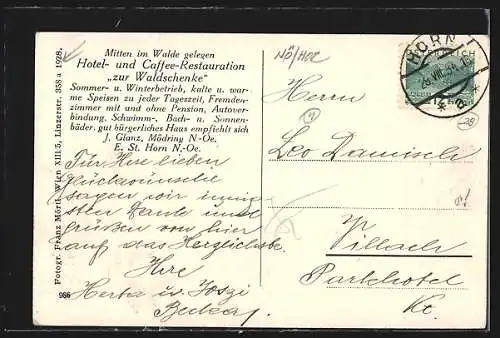 Mitten im Walde gelegen
Hotel- und Caffee-Restauration
„zur Waldschenke"
Sommer- u. Winterbetrieb, kalte u. war-
me Speisen zu jeder Tageszeit, Fremden-
zimmer mit und ohne Pension, Autover-
bindung. Schwimm-, Bach- u. Sonnen-
bäder, gut bürgerliches Haus empfiehlt sich
J. Glanz, Mödring N.-Oe.
E. St. Horn N.-Oe.
Für Ihre lieben
Glückwünsche
sagen wir innig-
sten Dank und
grüßen von hier
auf das Herzlichste
Ihre
Herta u. Joszi
986
Fotogr. Franz Mörtl, Wien XIII/5, Linzerstr. 358 a 1928.
NÖ/HOR
HORN
Herrn
Leo Damisch
Villach
Parkhotel
Kt.